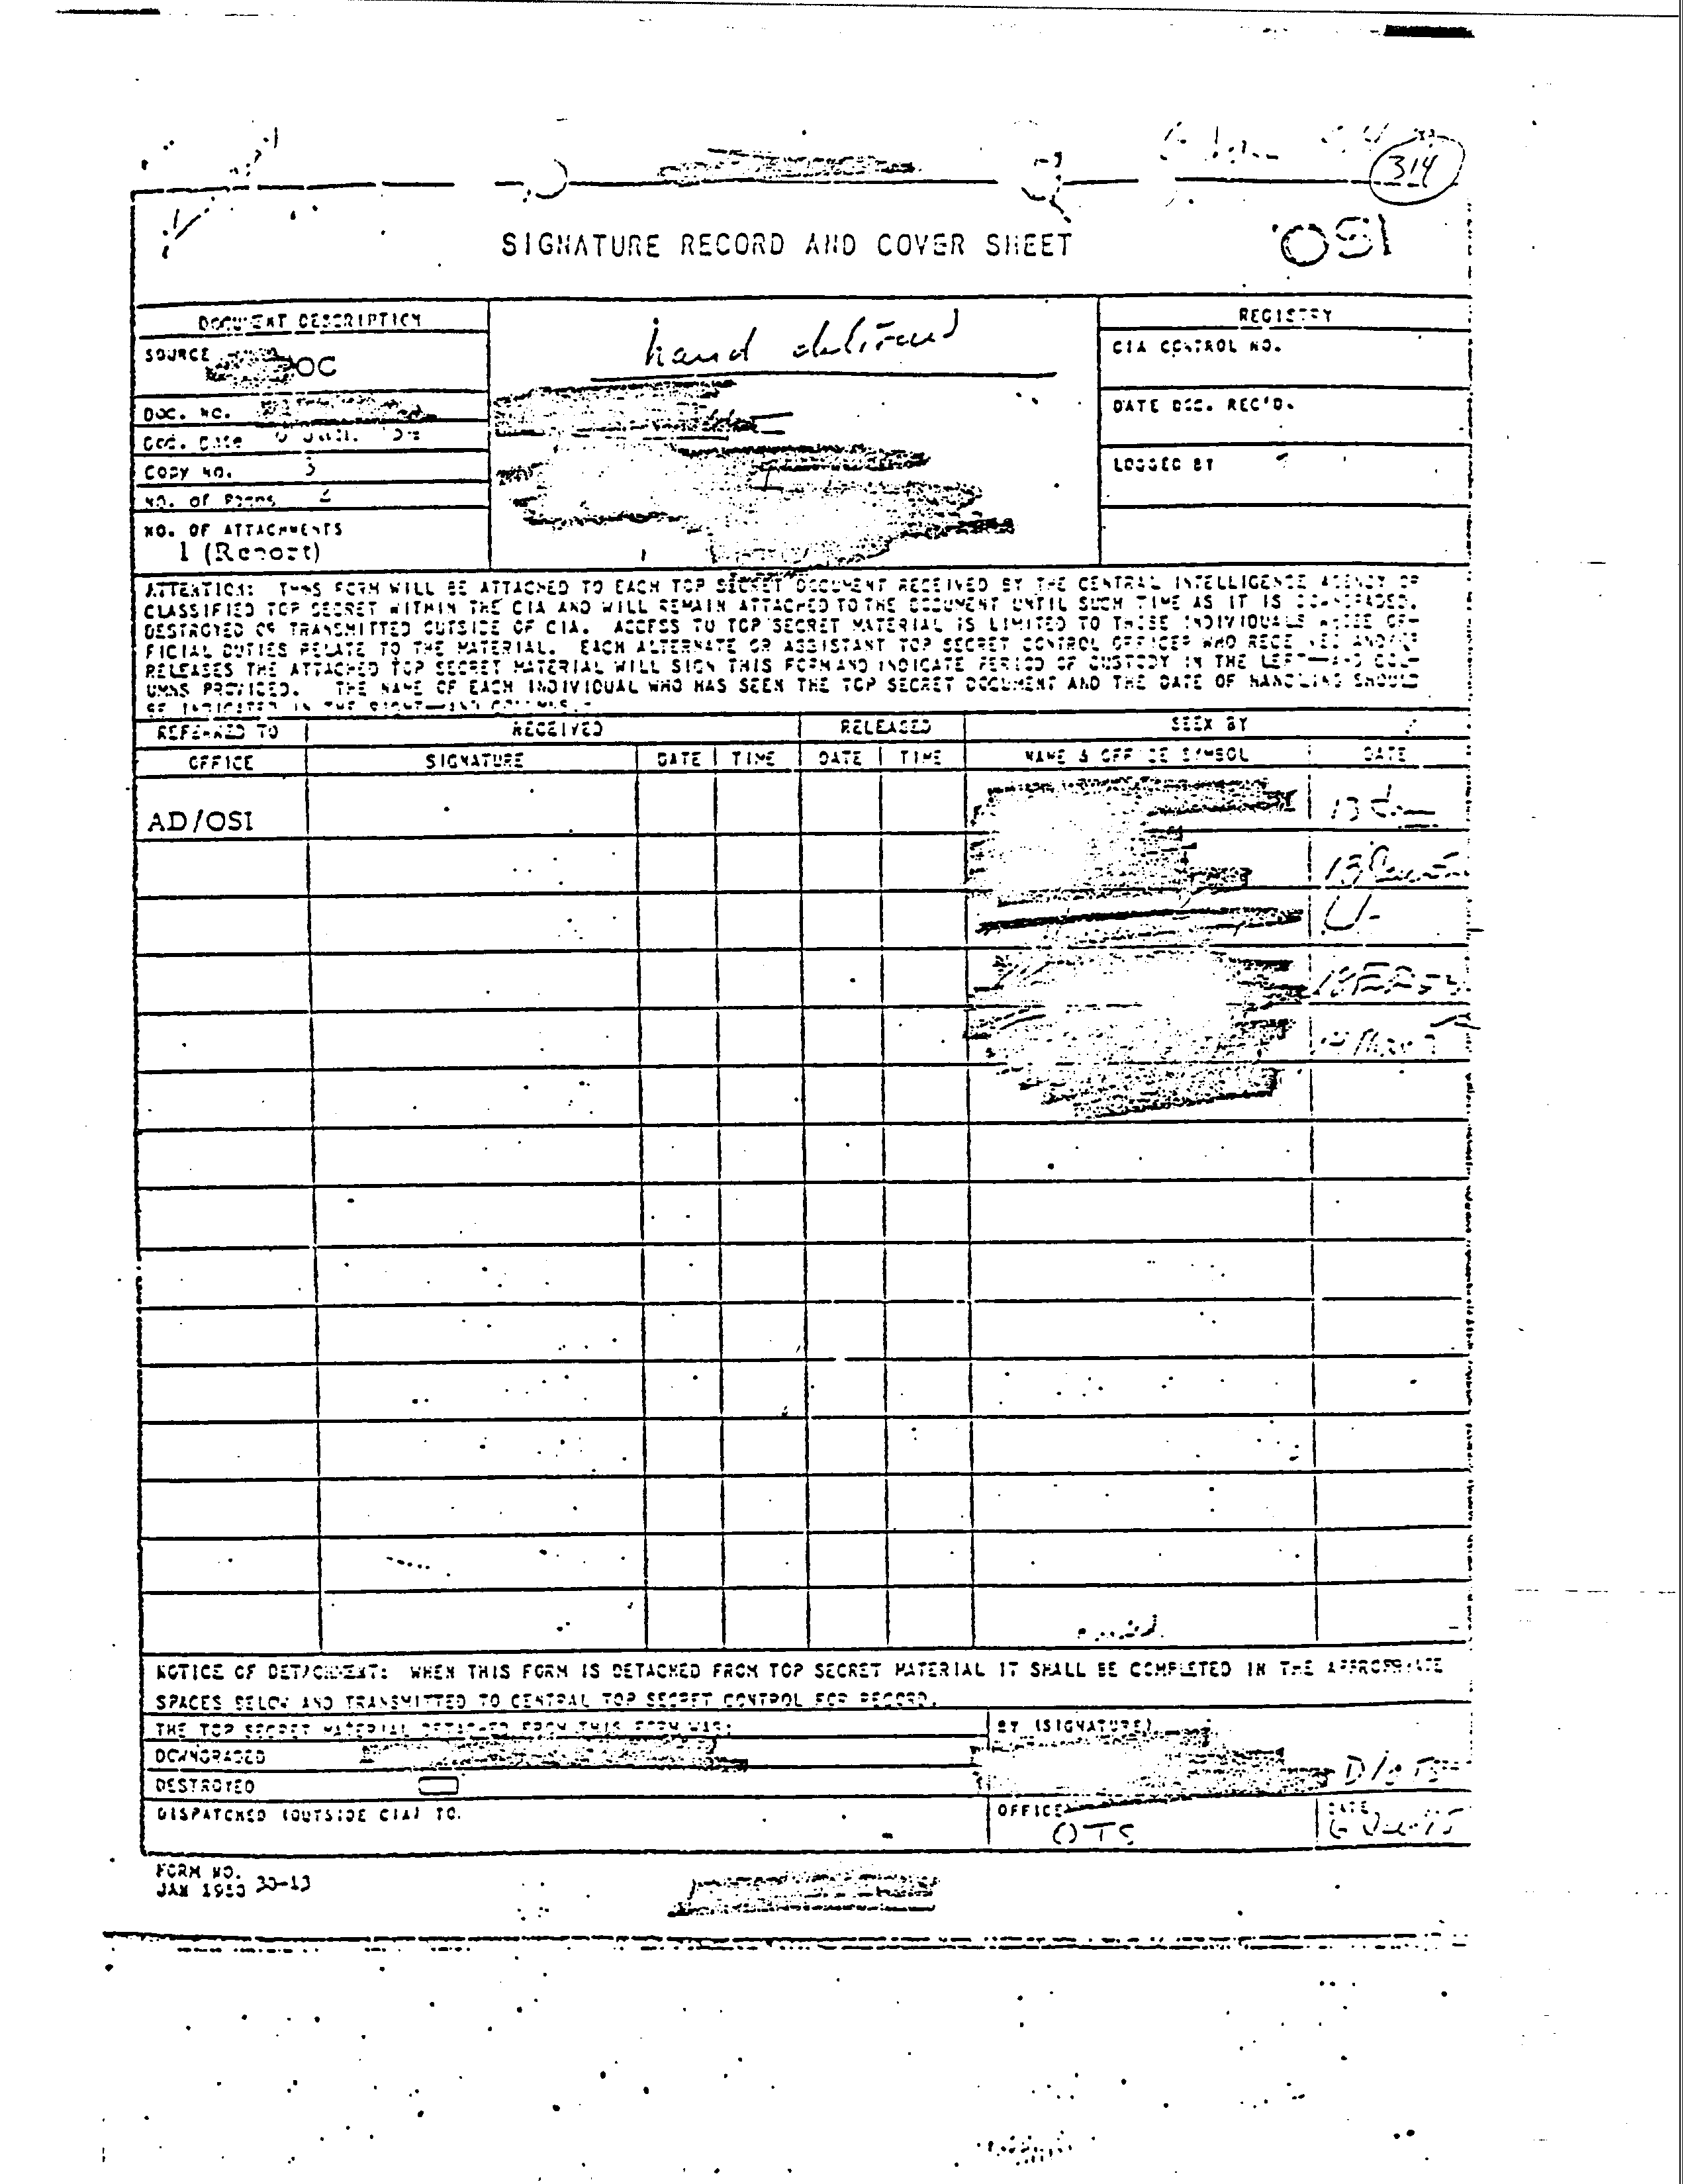 314
SIGNATURE RECORD AND COVER SHEET
OSI
DOCUMENT DESCRIPTION
REGISTRY
SOURCE
OC
hand delivered
CIA CONTROL NO.
DOC. NO.
DATE DOC. REC'D.
Doc. Date
COPY NO. 3
LOGGED BY
NO. OF Pages 2
NO. OF ATTACHMENTS
1 (Report)
ATTENTION: THIS FORM WILL BE ATTACHED TO EACH TOP SECRET DOCUMENT RECEIVED BY THE CENTRAL INTELLIGENCE AGENCY OR
CLASSIFIED TOP SECRET WITHIN THE CIA AND WILL REMAIN ATTACHED TO THE DOCUMENT UNTIL SUCH TIME AS IT IS DOWNGRADED,
DESTROYED OR TRANSMITTED OUTSIDE OF CIA. ACCESS TO TOP SECRET MATERIAL IS LIMITED TO THOSE INDIVIDUALS WHOSE OF-
FICIAL DUTIES RELATE TO THE MATERIAL. EACH ALTERNATE OR ASSISTANT TOP SECRET CONTROL OFFICER WHO RECEIVES AND/OR
RELEASES THE ATTACHED TOP SECRET MATERIAL WILL SIGN THIS FORM AND INDICATE PERIOD OF CUSTODY IN THE LEFT—HAND COL-
UMNS PROVIDED. THE NAME OF EACH INDIVIDUAL WHO HAS SEEN THE TOP SECRET DOCUMENT AND THE DATE OF HANDLING SHOULD
BE INDICATED IN THE RIGHT—HAND COLUMNS.
REFERRED TO RECEIVED RELEASED SEEN BY
OFFICE SIGNATURE DATE TIME DATE TIME NAME & OFFICE SYMBOL DATE
AD/OSI
NOTICE OF DETACHMENT: WHEN THIS FORM IS DETACHED FROM TOP SECRET MATERIAL IT SHALL BE COMPLETED IN THE APPROPRIATE
SPACES BELOW AND TRANSMITTED TO CENTRAL TOP SECRET CONTROL FOR RECORD.
THE TOP SECRET MATERIAL DETACHED FROM THIS FORM WAS:
BY (SIGNATURE)
DOWNGRADED
DESTROYED
DISPATCHED (OUTSIDE CIA) TO.
OFFICE
OTS
DATE
FORM NO.
JAN 1950 30-13